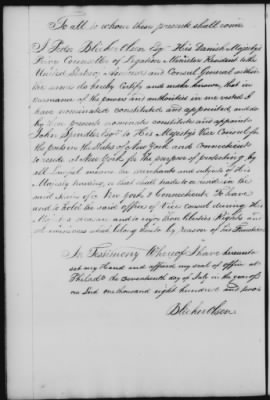 To all to whom these presents shall come
I Peder Blicher Olsen Esqr His Danish Majesty's
Privy Counsellor of Legation Minister Resident to the
United States of America and Consul General within
the same do hereby Certify and make known, that in
pursuance of the powers and authorities in me vested I
have nominated constituted and appointed, and do
by these presents nominate constitute and appoint
John Esqr to His Majesty's Vice Consul for
the ports in the States of New York and Connecticut
to reside at New York for the purpose of protecting, by
all Lawful means the merchants and subjects of His
Majesty residing, or that shall trade or reside in the
said States of New York & Connecticut To have
and to hold the said office of Vice Consul during His
and to enjoy the Rights and
belong thereto by reason of his
In Testimony Whereof I have hereunto
set my Hand and affixed my seal of Office at
Philada the seventeenth day of July in the year of
our Lord one thousand eight hundred and two
Blicherolsen